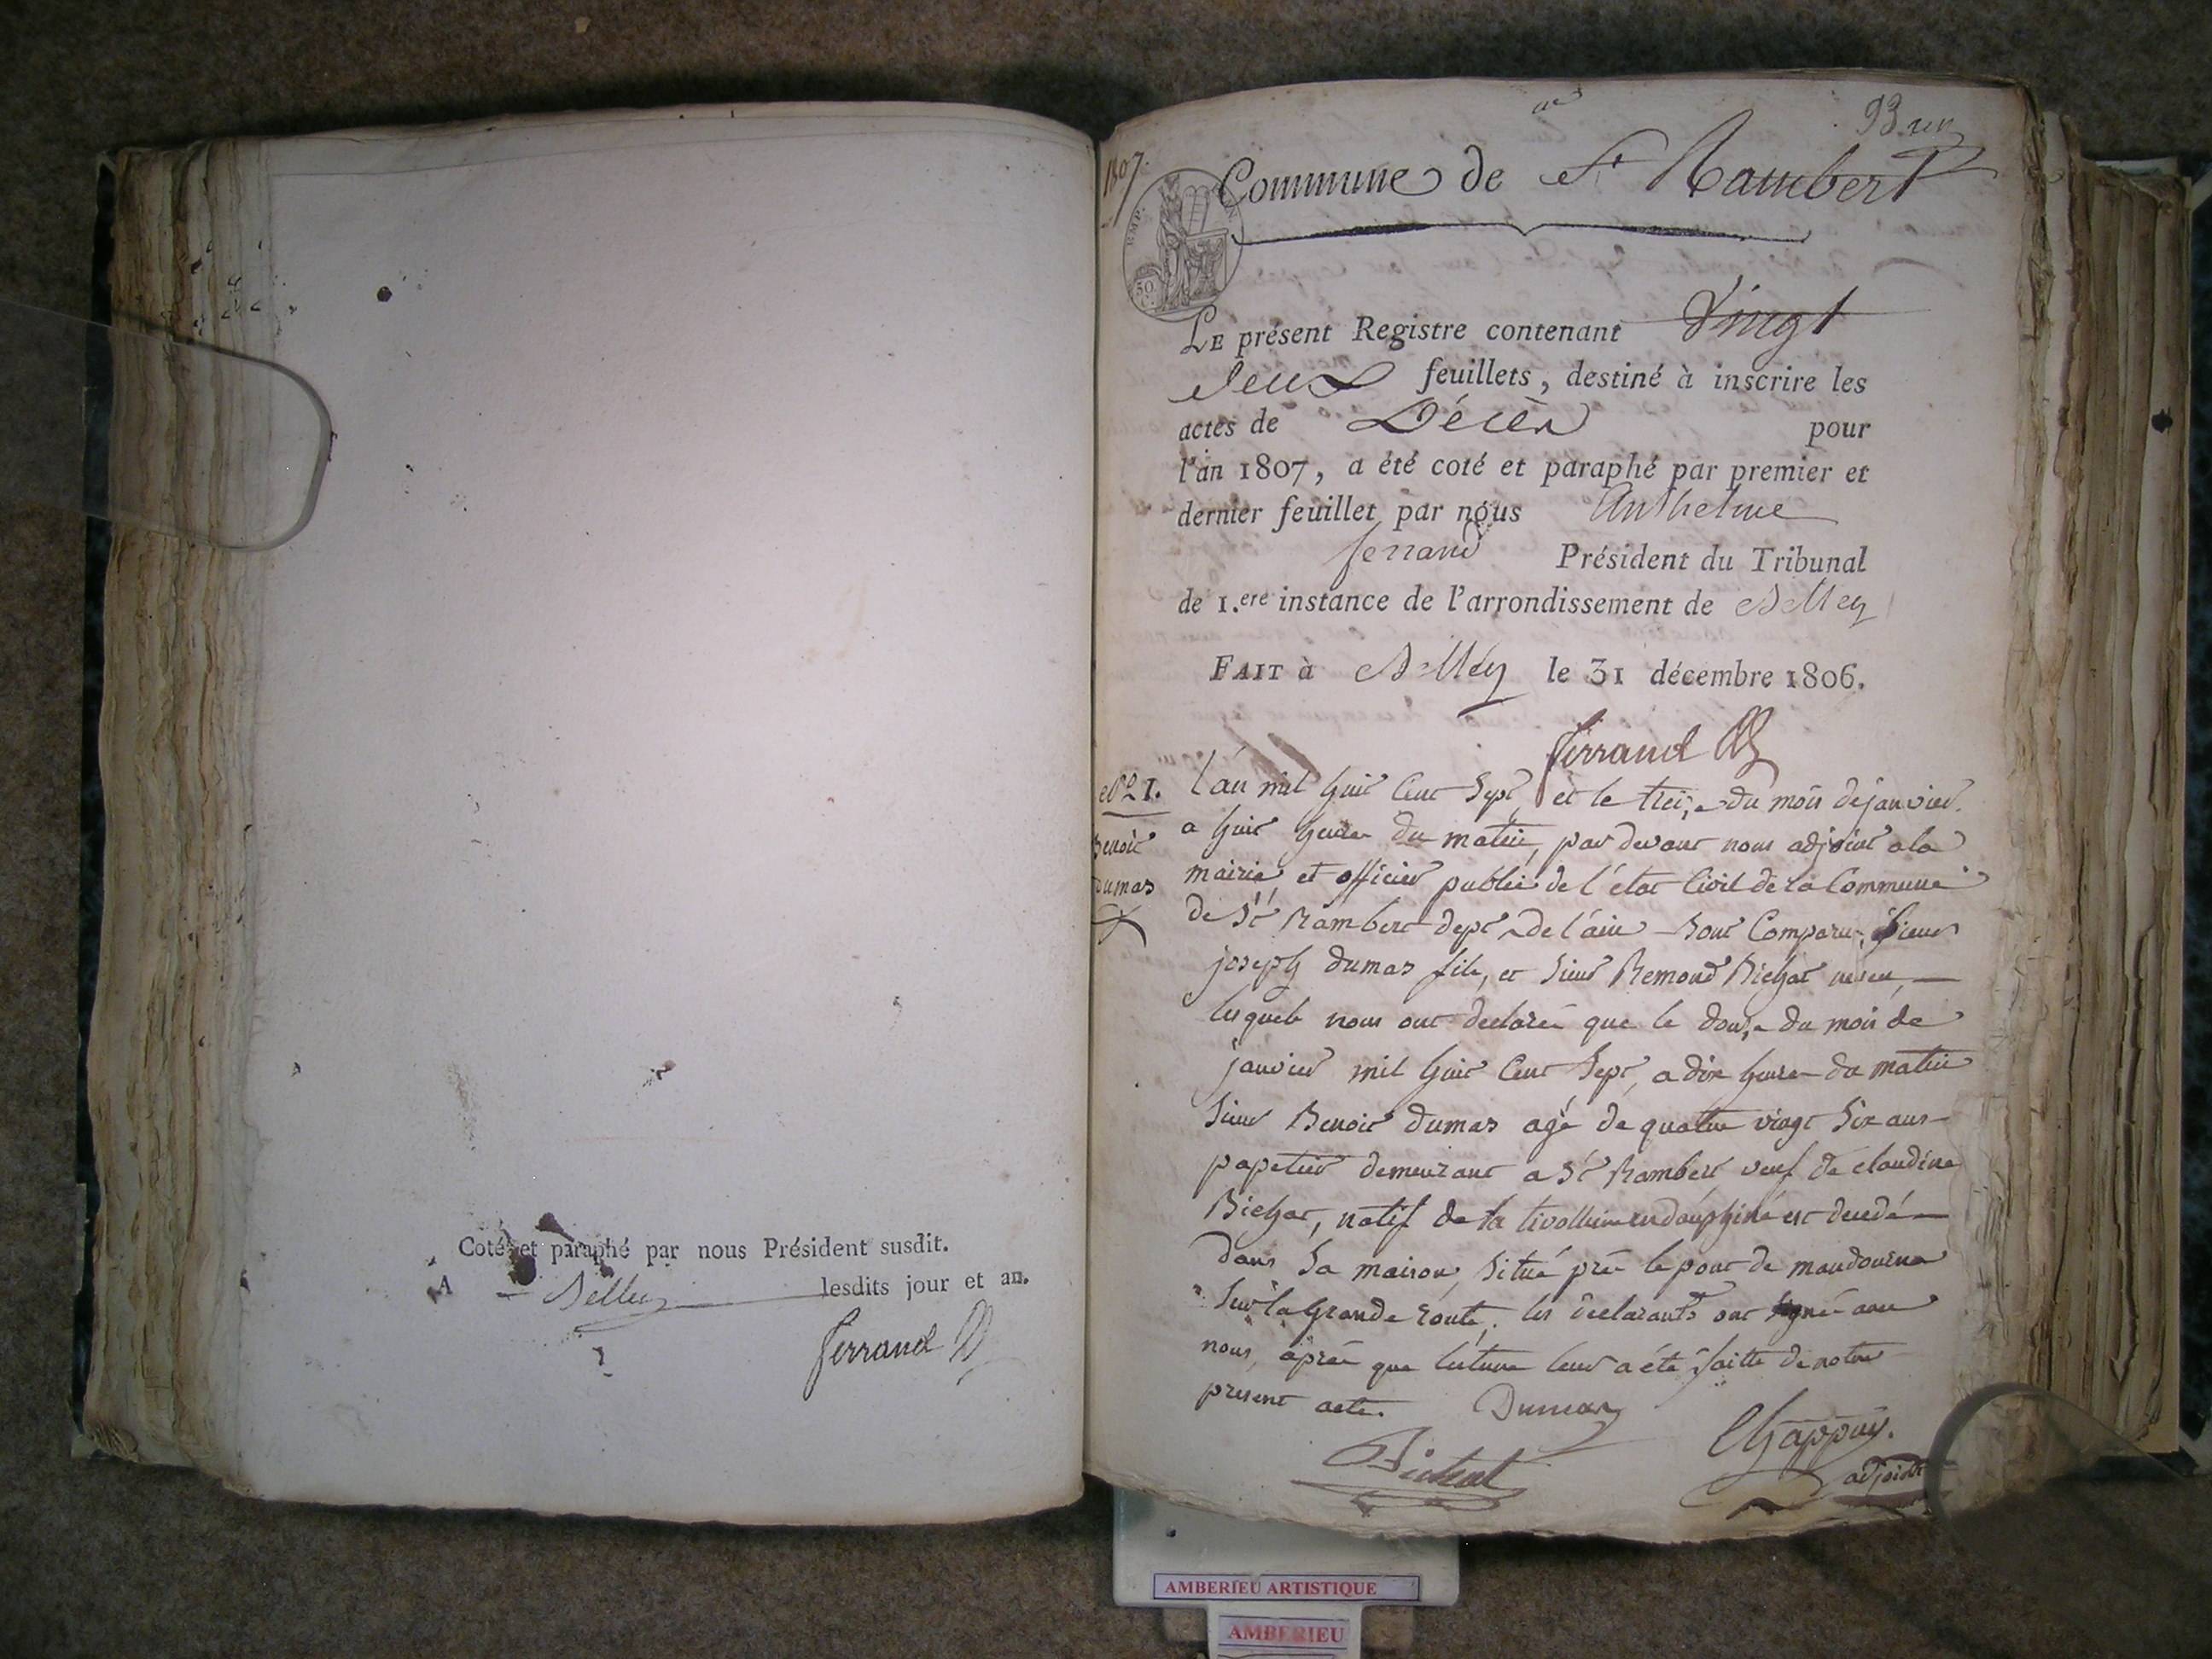 Coté et paraphé par nous Président susdit.
A Belley lesdits jour et an.
Ferrand
1807.
Commune de St Rambert
EMP.
50
C.
LE présent Registre contenant Vingt
deux feuillets, destiné à inscrire les
actes de Décès pour
l'an 1807, a été coté et paraphé par premier et
dernier feuillet par nous Anthelme
ferrand Président du Tribunal
de 1.ere instance de l'arrondissement de Belley
FAIT à Belley le 31 décembre 1806.
Ferrand
No 1.
Benoit
Dumas
l'an mil huit Cent Sept, et le treize du mois de janvier
a huit heures du matin, par devant nous adjoint a la
mairie et officier public de l'état Civil de la Commune
de St Rambert dept de l'ain sont Comparu, Sieur
joseph dumas fils, et Sieur Remond Bichat neveu,
lesquels nous ont declaré que le douze du mois de
janvier mil huit Cent Sept, a dix heures du matin
Sieur Benoit dumas agé de quatre vingt Six ans
papetier demeurant a St Rambert veuf de claudine
Bichat, natif de la en dauphiné est decedé
dans Sa maison, Situé près le pont de
Sur la grande route, les declarants ont signé avec
nous, après que lecture leur a été faitte de notre
présent acte. Dumas
Bichat
Chappuy.
adjoint
AMBERIEU ARTISTIQUE
AMBERIEU